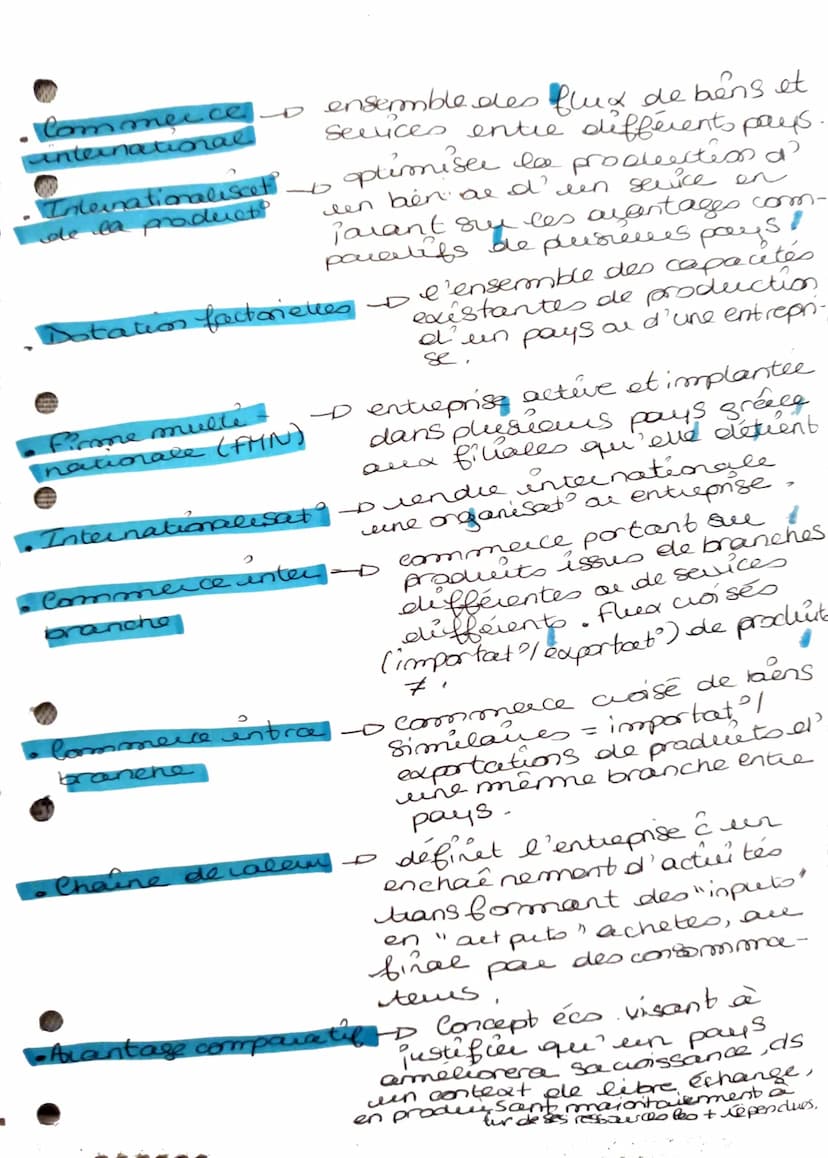 . Commerce international → ensemble des flux de biens et
services entre différents pays.
. Internationalisat° de la product° → optimiser la production d'
un bien ou d'un service en
jouant sur les avantages com-
paratifs de plusieurs pays !
. Dotation factorielles → l'ensemble des capacités
existantes de production
d'un pays ou d'une entrepri-
se.
. Firme multi- nationale (FMN) → entreprise active et implantée
dans plusieurs pays grâce
aux filiales qu'elle détient
. Internationalisat° → rendre internationale
une organisat° ou entreprise.
. Commerce inter branche → commerce portant sur
produits issus de branches
différentes ou de services
différents. Flux croisés
(importat°/exportat°) de produits
≠.
. Commerce intra branche → commerce croisé de biens
similaires = importat°/
exportations de produits d'
une même branche entre
pays.
. Chaîne de valeur → définit l'entreprise c un
enchaînement d'activités
transformant des "inputs"
en "out puts" achetés, au
final par des consomma-
teurs.
. Avantage comparatif → Concept éco. visant à
justifier qu'un pays
améliorera sa croissance, ds
un context de libre échange,
en produisant majoritairement à
les + répendues.